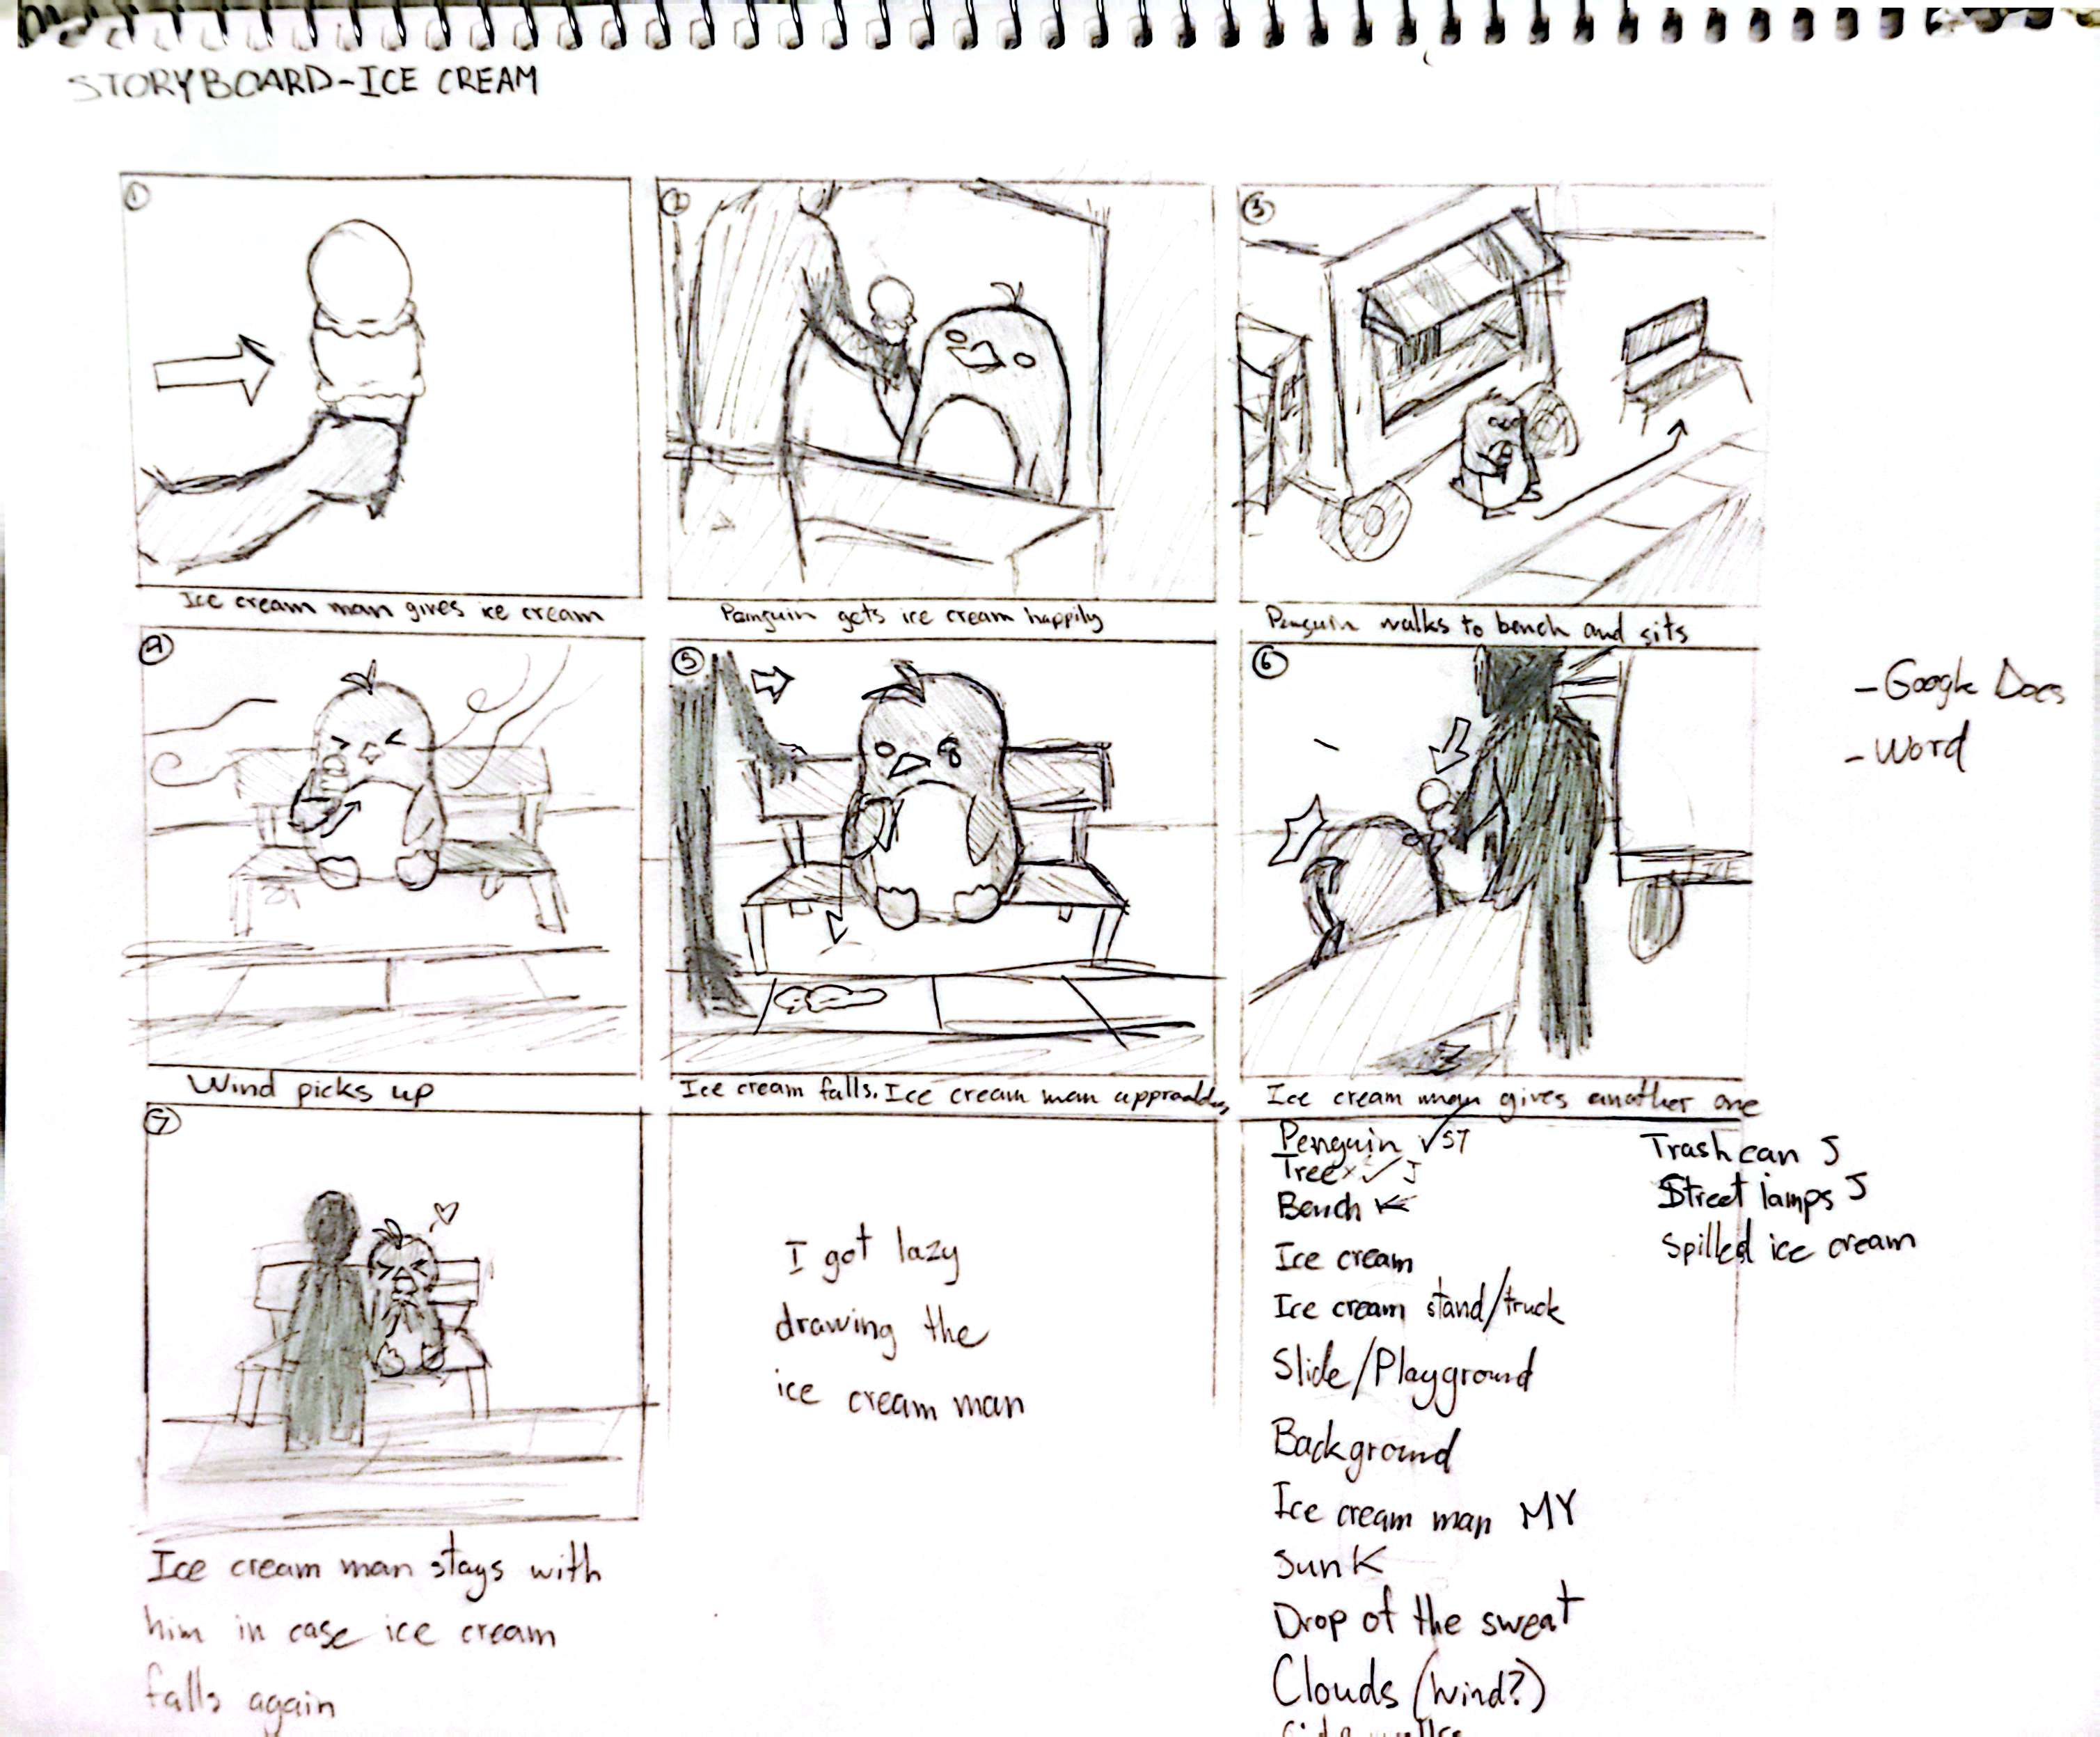 STORYBOARD-ICE CREAM
1
Ice cream man gives ice cream
2
Penguin gets ice cream happily
3
Penguin walks to bench and sits
4
Wind picks up
5
Ice cream falls. Ice cream man
6
Ice cream man gives another one
- Google Docs
- Word
7
Ice cream man stays with
him in case ice cream
falls again
I got lazy
drawing the
ice cream man
Penguin ✓ST
Tree x ✓ J
Bench K
Ice cream
Ice cream stand/truck
Slide/Playground
Background
Ice cream man MY
Sun K
Drop of the sweat
Clouds (wind?)
Trash can J
Street lamps J
Spilled ice cream